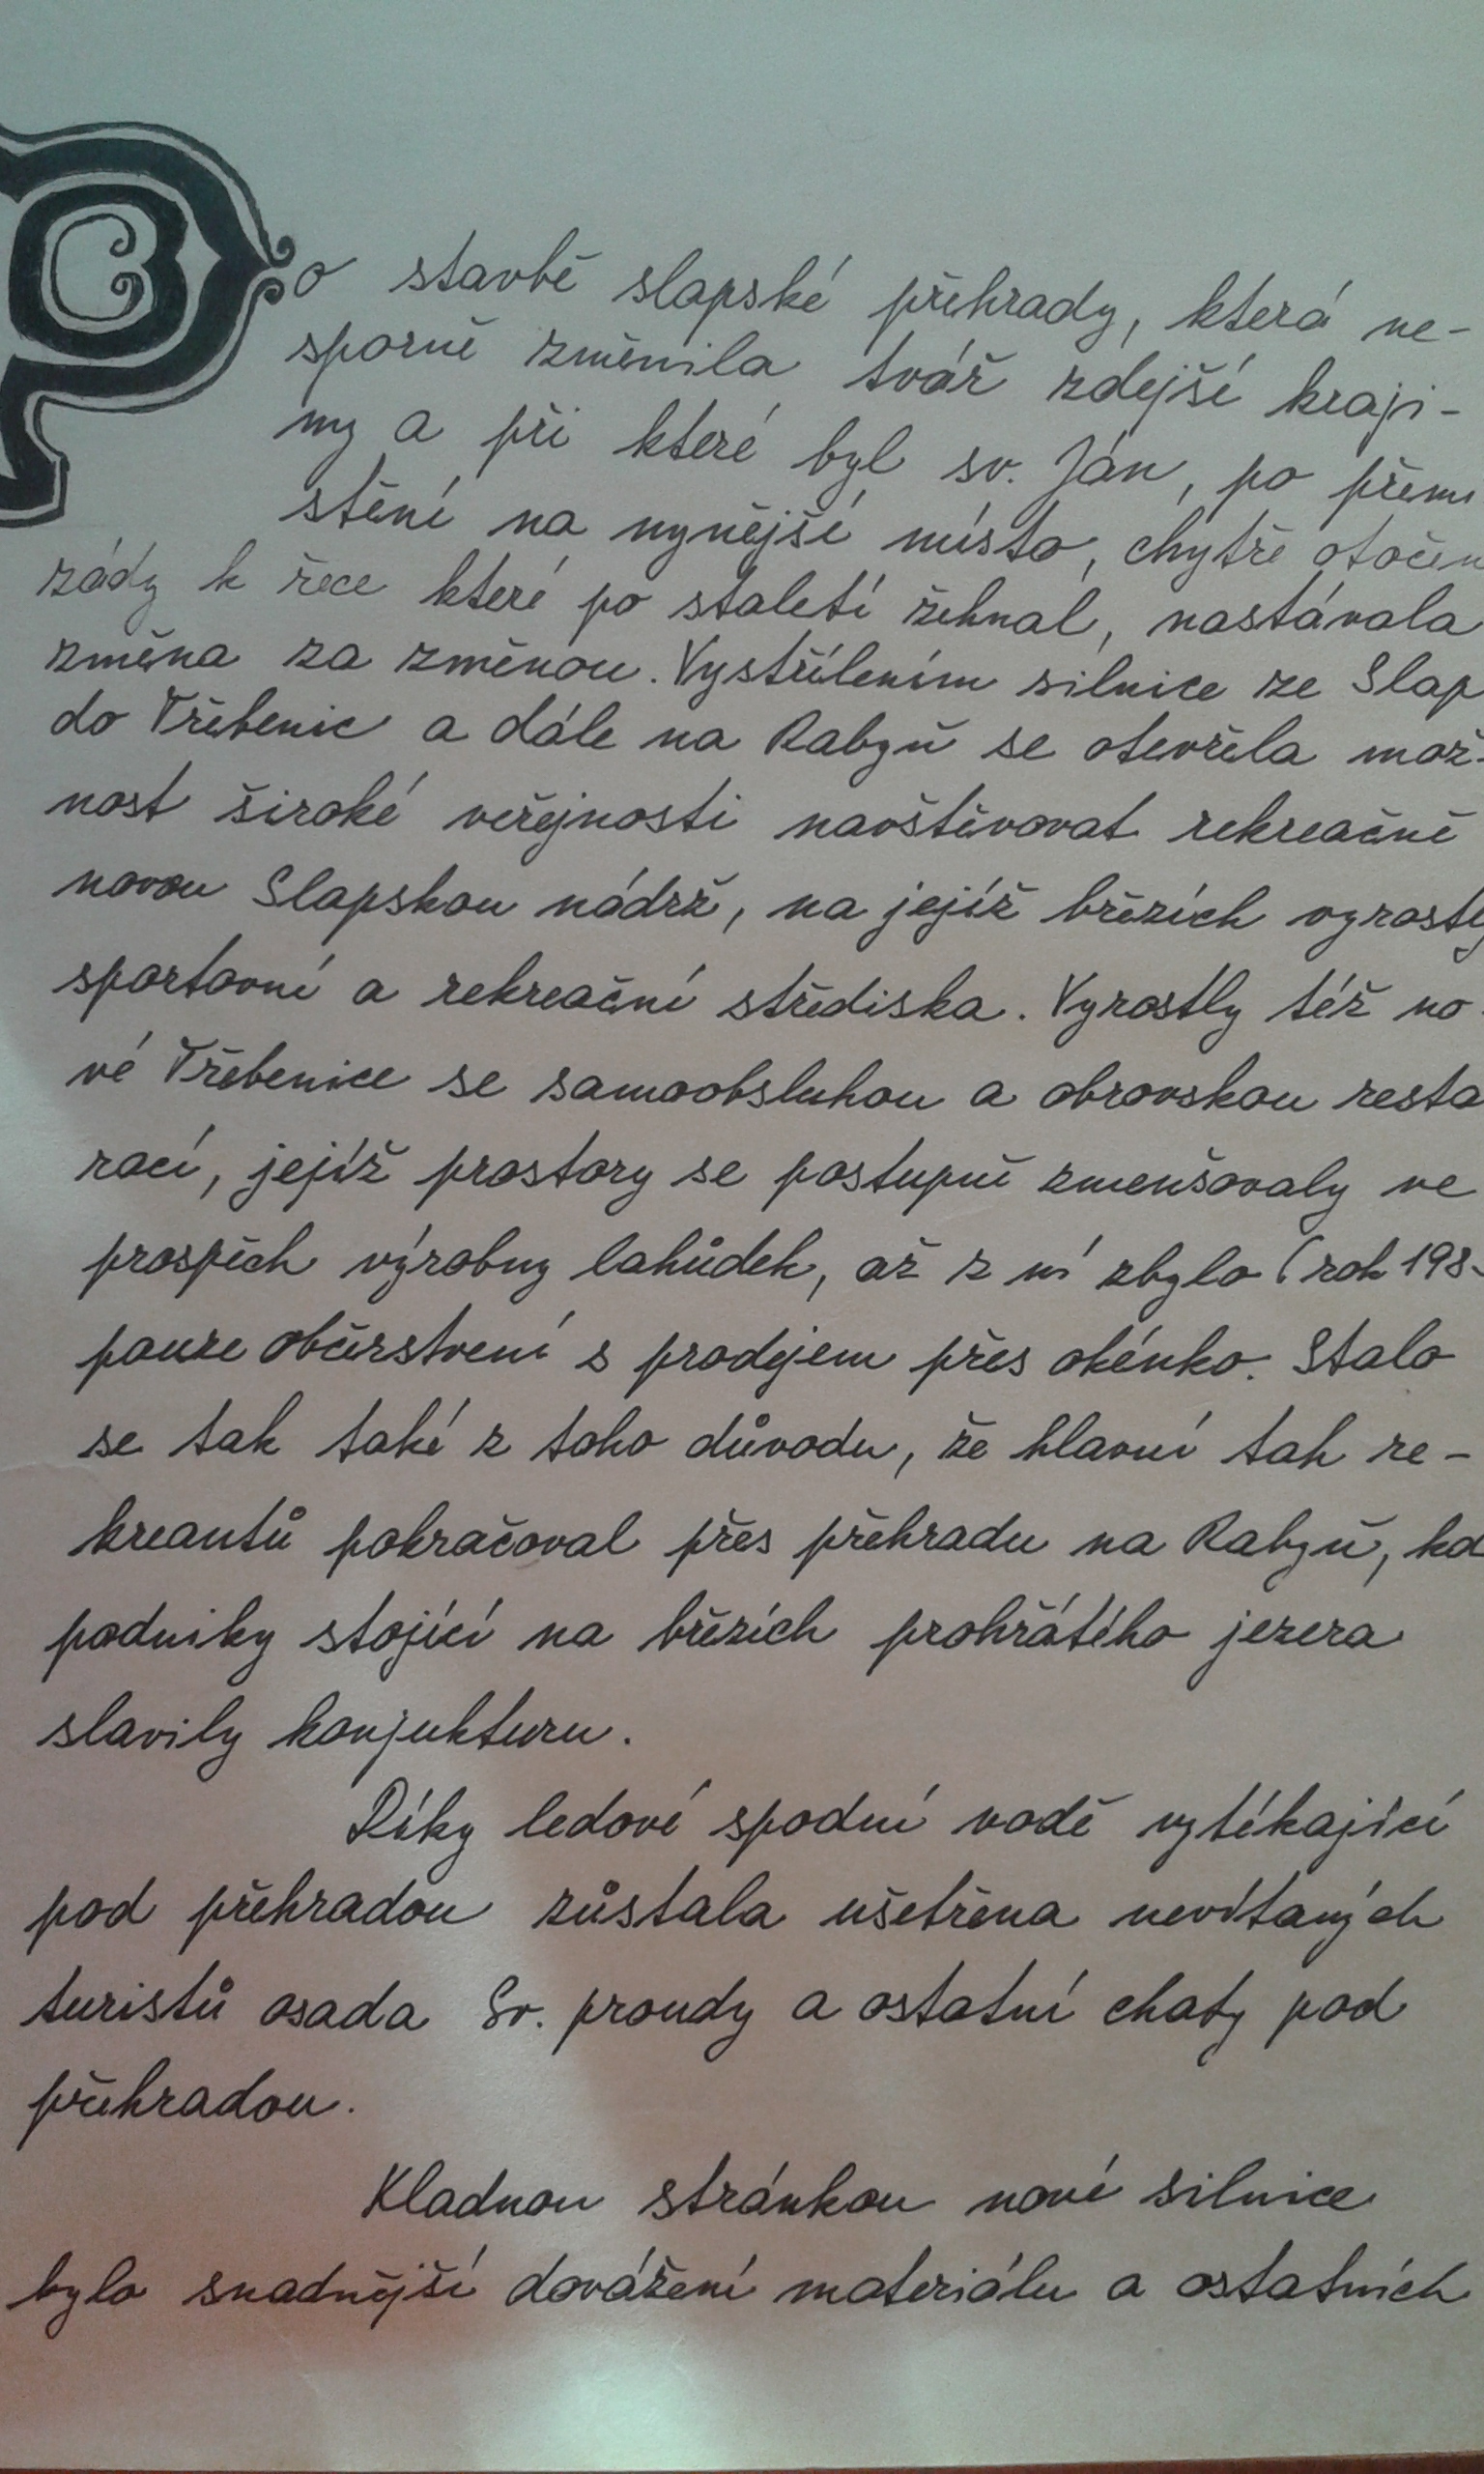 Po stavbě slapské přehrady, která ne-
sporně změnila tvář zdejší kraji-
ny a při které byl sv. Ján, po přemi
stění na nynější místo, chytře otočen
zády k řece které po staletí žehnal, nastávala
změna za změnou. Vystřílením silnice ze Slap
do Třebenic a dále na Rabyň se otevřela mož-
nost široké veřejnosti navštěvovat rekreačně
novou Slapskou nádrž, na jejíž březích vyrostly
sportovní a rekreační střediska. Vyrostly též no-
vé Třebenice se samoobsluhou a obrovskou resta
rací, jejíž prostory se postupně zmenšovaly ve
prospěch výrobny lahůdek, až z ní zbylo (rok 198
pouze občerstvení s prodejem přes okénko. Stalo
se tak také z toho důvodu, že hlavní tah re-
kreantů pokračoval přes přehradu na Rabyň, kd
podniky stojící na březích prohřátého jezera
slavily konjukturu.
Díky ledové spodní vodě vytékající
pod přehradou zůstala ušetřena nevítaných
turistů osada Sv. proudy a ostatní chaty pod
přehradou.
Kladnou stránkou nové silnice
bylo snadnější dovážení materiálu a ostatních